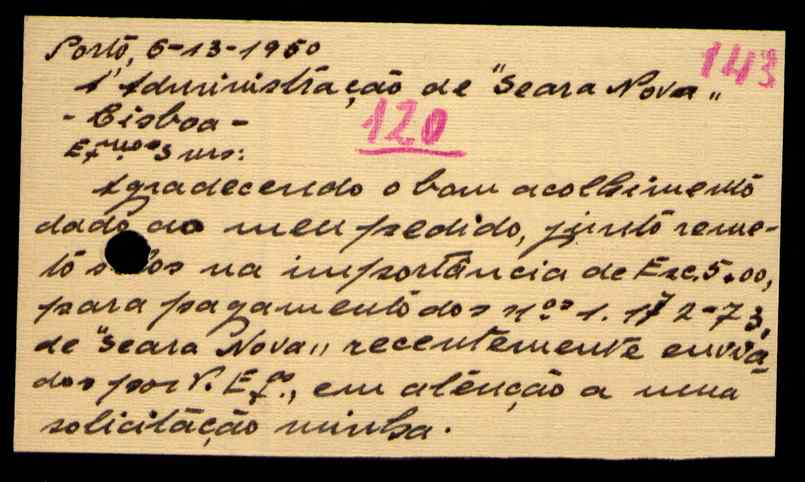 Porto, 6-13-1950
143
À Administração de "Seara Nova"
- Lisboa -
120
Ex.mos Snrs:
Agradecendo o bom acolhimento
dado ao meu pedido, junto reme-
to selos na importância de Esc. 5.00,
para pagamento dos n.os 1.172-73,
de "Seara Nova" recentemente envia-
dos por V. Ex.as, em atenção a uma
solicitação minha.